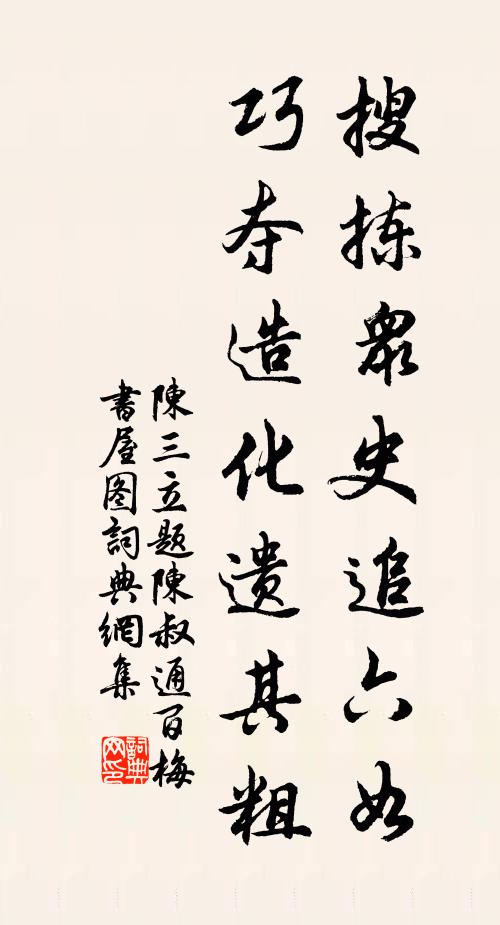 搜拣眾史追六如
巧夺造化遗其粗
陳三立题陳叔通百梅
書屋图詞典網集